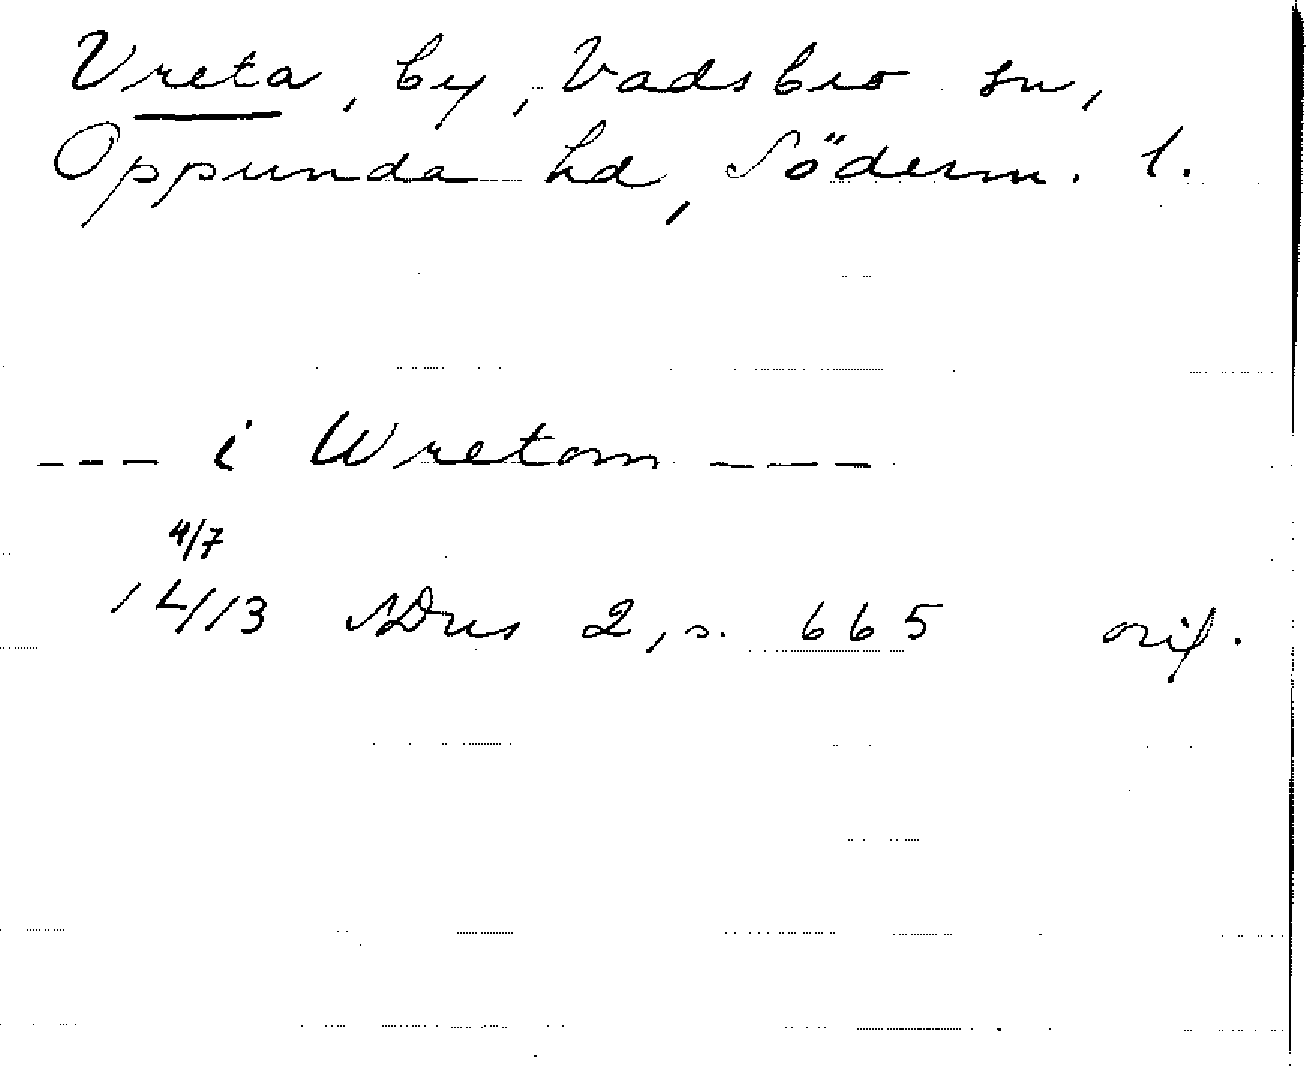 Vreta, by, Vadsbro sn,
Oppunda hd, Söderm. l.
--- i Wretom ----
4/7
1413 SDns 2, s. 665 orig.